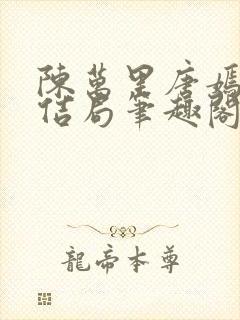 陳萬里唐嫣
佶局筆趣閣
龍帝本尊